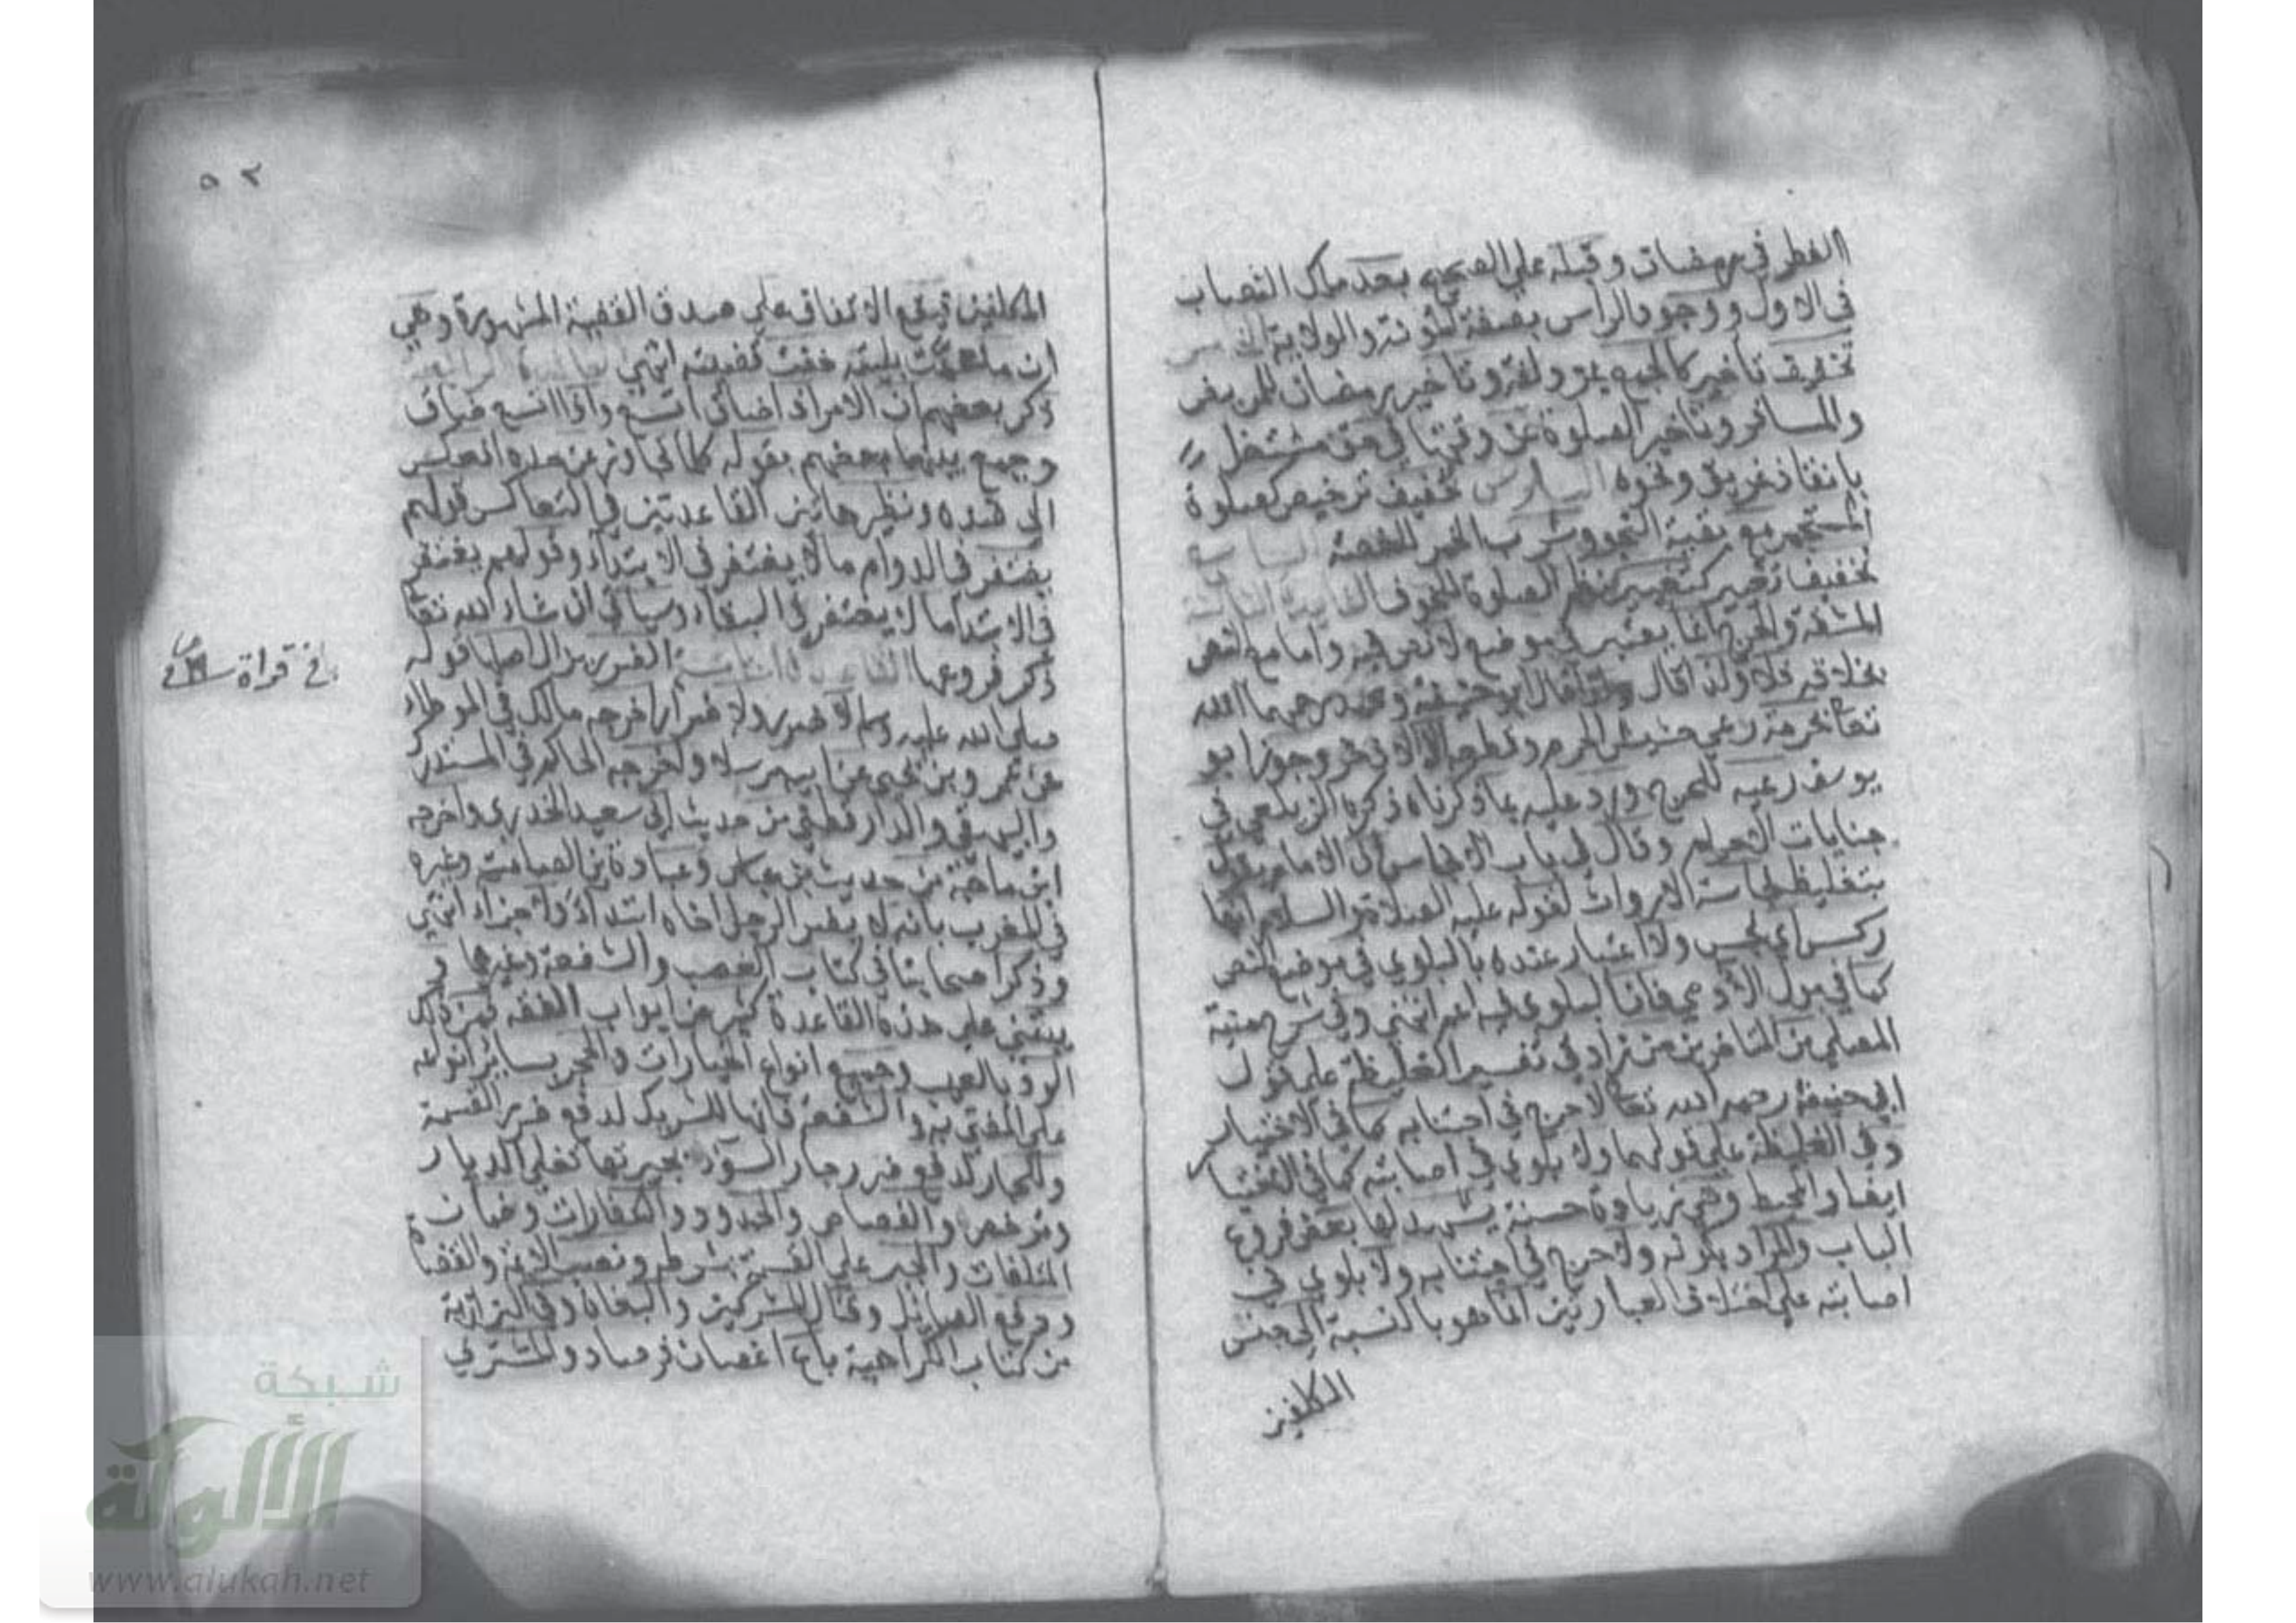 الفطر في رمضان وقبله على الصحيح بعد ملك النصاب
في الاول ووجود الراس بصفة المؤنة والولاية الخامس
تخفيف تأخير كالجمع بمزدلفة وتأخير رمضان للمريض
والمسافر وتأخير الصلوة عن وقتها في حق مشتغل
بانقاذ غريق ونحوه السادس تخفيف ترخيص كصلوة
المستجمر مع بقية النجو وشرب الخمر للغصة السابع
تخفيف تغيير كتغيير نظم الصلوة للخوف الفائدة الثالثة
المشقة والحرج انما يعتبر في موضع لا نص فيه واما مع النص
بخلافه فلا ولذا قال ابو حنيفة ومحمد رحمهما الله
تعا بحرمة رعي حشيش الحرم وقطعه الا الاذخر وجوز ابو
يوسف رعيه للحرج ورد عليه بما ذكرناه ذكره الزيلعي في
جنايات الاحرام وقال في باب الانجاس ان الامام يقول
بتغليظ نجاسة الارواث لقوله عليه الصلاة والسلام انها
ركس اي نجس ولا اعتبار عنده بالبلوي في موضع النص
كما في بول الآدمي فان البلوي فيه اعم انتهي وفي شرح منية
المصلي من المتاخرين من زاد في تفسير الغليظة علي قول
ابي حنيفة رحمه الله تعا ولا حرج في اجتنابه كما في الاختيار
وفي الغليظة علي قولهما ولا بلوي في اصابته كما في الاختيار
ايضا والمحيط وهي زيادة حسنة يشهد لها بعض فروع
الباب والمراد بقوله ولا حرج في اجتنابه ولا بلوي في
اصابته علي اختلاف العبارتين انما هو بالنسبة الي جنس
المكلفين
٥٢
المكلفين فيقع الاتفاق علي صدق القضية المشهورة وهي
ان ما عمت بليته خفت قضيته انتهي الفائدة الرابعة
ذكر بعضهم ان الامر اذا ضاق اتسع واذا اتسع ضاق
وجمع بينهما بعضهم بقوله كلما تجاوز عن حده انعكس
الي ضده ونظير هاتين القاعدتين في التعاكس قولهم
يغتفر في الدوام ما لا يغتفر في الابتداء وقولهم يغتفر
في الابتداء ما لا يغتفر في البقاء وسياتي ان شاء الله تعا
ذكر فروعها القاعدة الخامسة الضرر يزال اصلها قوله
صلي الله عليه وسلم لا ضرر ولا ضرار اخرجه مالك في الموطاء
عن عمرو بن يحيي عن ابيه مرسلا واخرجه الحاكم في المستدرك
والبيهقي والدارقطني من حديث ابي سعيد الخدري واخرجه
ابن ماجة من حديث ابن عباس وعبادة بن الصامت وفسره
في المغرب بانه لا يضر الرجل اخاه ابتداء ولا جزاء انتهي
وذكر اصحابنا في كتاب الغصب والشفعة وغيرها و
يبتني علي هذه القاعدة كثير من ابواب الفقه فمن ذلك
الرد بالعيب وجميع انواع الخيارات والحجر بسائر انواعه
علي المفتي به والشفعة فانها للشريك لدفع ضرر القسمة
وللجار لدفع ضرر جار السوء بجيرتها تغلي الديار
وترخص والقصاص والحدود والكفارات وضمان
المتلفات والجبر علي القسمة بشرطه ونصب الائمة والقضاة
ودفع الصائل وقتال المشركين والبغاة وفي البزازية
من كتاب الكراهية باع اغصان فرصاد والمشتري